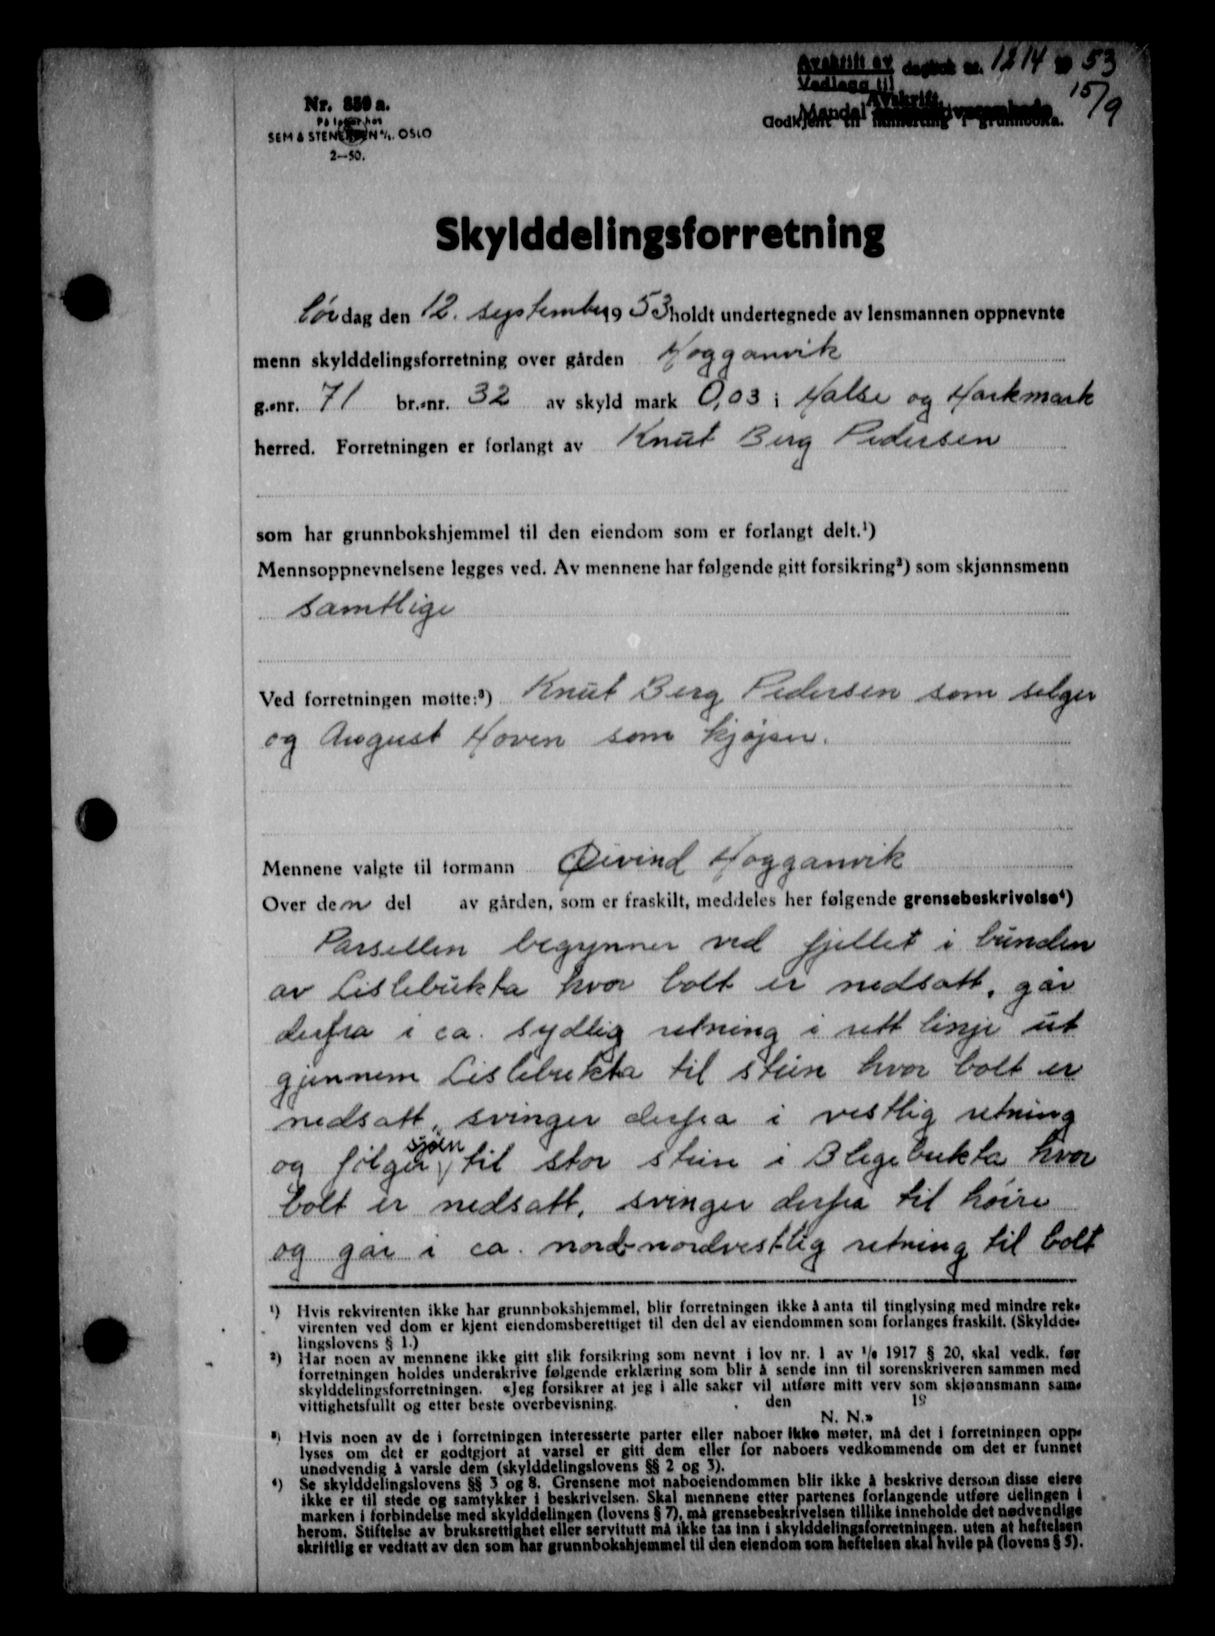 Avskrift av dagbok nr. 1214 19 53
Vedlegg til 15/9
Avskrift.
Mandal
Godkjent til innføring i grunnboka.
Nr. 830 a.
På lager hos
SEM & STENERSEN A/S. OSLO
2—50.
Skylddelingsforretning
Lørdag den 12. september 19 53 holdt undertegnede av lensmannen oppnevnte
menn skylddelingsforretning over gården Hogganvik
g.-nr. 71 br.-nr. 32 av skyld mark 0,03 i Halse og Harkmark
herred. Forretningen er forlangt av Knut Berg Pedersen
som har grunnbokshjemmel til den eiendom som er forlangt delt.¹)
Mennsoppnevnelsene legges ved. Av mennene har følgende gitt forsikring²) som skjønnsmenn
samtlige
Ved forretningen møtte:³) Knut Berg Pedersen som selger
og August Hoven som kjøjper.
Mennene valgte til formann Øivind Hogganvik
Over den del av gården, som er fraskilt, meddeles her følgende grensebeskrivelse⁴)
Parsellen begynner ved fjellet i bunden
av Lislebukta hvor bolt er nedsatt, går
derfra i ca. sydlig retning i rett linje ut
gjennem Lislebukta til stein hvor bolt er
nedsatt, svinger derfra i vestlig retning
og følger sjøen til stor stein i Blegebukta hvor
bolt er nedsatt, svinger derfra til høire
og går i ca. nord-nordvestlig retning til bolt
¹) Hvis rekvirenten ikke har grunnbokshjemmel, blir forretningen ikke å anta til tinglysing med mindre rek-
virenten ved dom er kjent eiendomsberettiget til den del av eiendommen som forlanges fraskilt. (Skyldde-
lingslovens § 1.)
²) Har noen av mennene ikke gitt slik forsikring som nevnt i lov nr. 1 av 1/6 1917 § 20, skal vedk. før
forretningen holdes underskrive følgende erklæring som blir å sende inn til sorenskriveren sammen med
skylddelingsforretningen. «Jeg forsikrer at jeg i alle saker vil utføre mitt verv som skjønnsmann sam-
vittighetsfullt og etter beste overbevisning. , den 19
N. N.»
³) Hvis noen av de i forretningen interesserte parter eller naboer ikke møter, må det i forretningen opp-
lyses om det er godtgjort at varsel er gitt dem eller for naboers vedkommende om det er funnet
unødvendig å varsle dem (skylddelingslovens §§ 2 og 3).
⁴) Se skylddelingslovens §§ 3 og 8. Grensene mot naboeiendommen blir ikke å beskrive dersom disse eiere
ikke er til stede og samtykker i beskrivelsen. Skal mennene etter partenes forlangende utføre delingen i
marken i forbindelse med skylddelingen (lovens § 7), må grensebeskrivelsen tillike inneholde det nødvendige
herom. Stiftelse av bruksrettighet eller servitutt må ikke tas inn i skylddelingsforretningen, uten at heftelsen
skriftlig er vedtatt av den som har grunnbokshjemmel til den eiendom som heftelsen skal hvile på (lovens § 5).